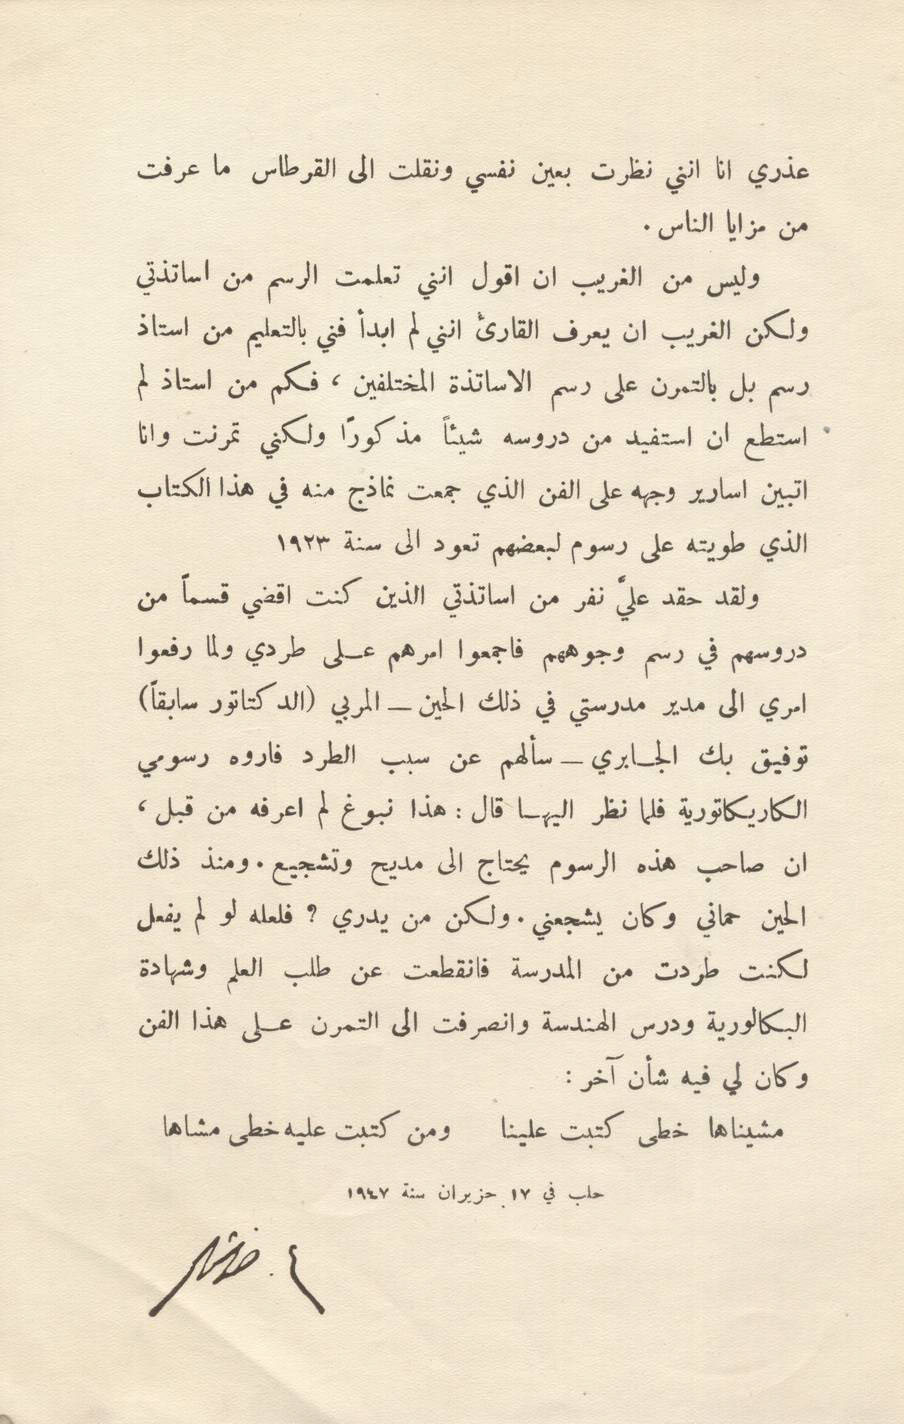 عذري انا انني نظرت بعين نفسي ونقلت الى القرطاس ما عرفت
من مزايا الناس .
وليس من الغريب ان اقول انني تعلمت الرسم من اساتذتي
ولكن الغريب ان يعرف القارئ انني لم ابدأ فني بالتعليم من استاذ
رسم بل بالتمرن على رسم الاساتذة المختلفين ، فكم من استاذ لم
استطع ان استفيد من دروسه شيئاً مذكورًا ولكني تمرنت وانا
اتبين اسارير وجهه على الفن الذي جمعت نماذج منه في هذا الكتاب
الذي طويته على رسوم لبعضهم تعود الى سنة ١٩٢٣
ولقد حقد عليَّ نفر من اساتذتي الذين كنت اقضي قسماً من
دروسهم في رسم وجوههم فاجمعوا امرهم عــلى طردي ولما رفعوا
امري الى مدير مدرستي في ذلك الحين ــ المربي (الدكتاتور سابقاً)
توفيق بك الجــابري ــ سألهم عن سبب الطرد فاروه رسومي
الكاريكاتورية فلما نظر اليهــا قال : هذا نبوغ لم اعرفه من قبل ،
ان صاحب هذه الرسوم يحتاج الى مديح وتشجيع . ومنذ ذلك
الحين حماني وكان يشجعني . ولكن من يدري ؟ فلعله لو لم يفعل
لكنت طردت من المدرسة فانقطعت عن طلب العلم وشهادة
البكالورية ودرس الهندسة وانصرفت الى التمرن عــلى هذا الفن
وكان لي فيه شأن آخر :
مشيناها خطى كتبت علينا ومن كتبت عليه خطى مشاها
حلب في ١٧ حزيران سنة ١٩٤٧